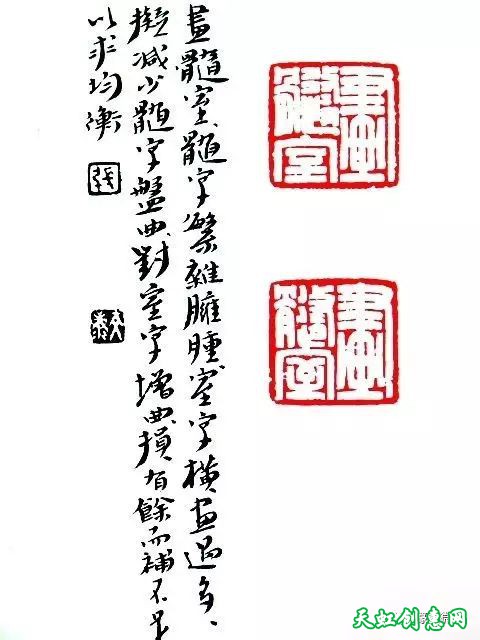 畫髓室、髓字繁雜臃腫室字橫畫過多、
擬減少髓字盤曲、對室字增曲損有餘而補不足
以求均衡
張
畫髓室
畫髓室
天虹创意网